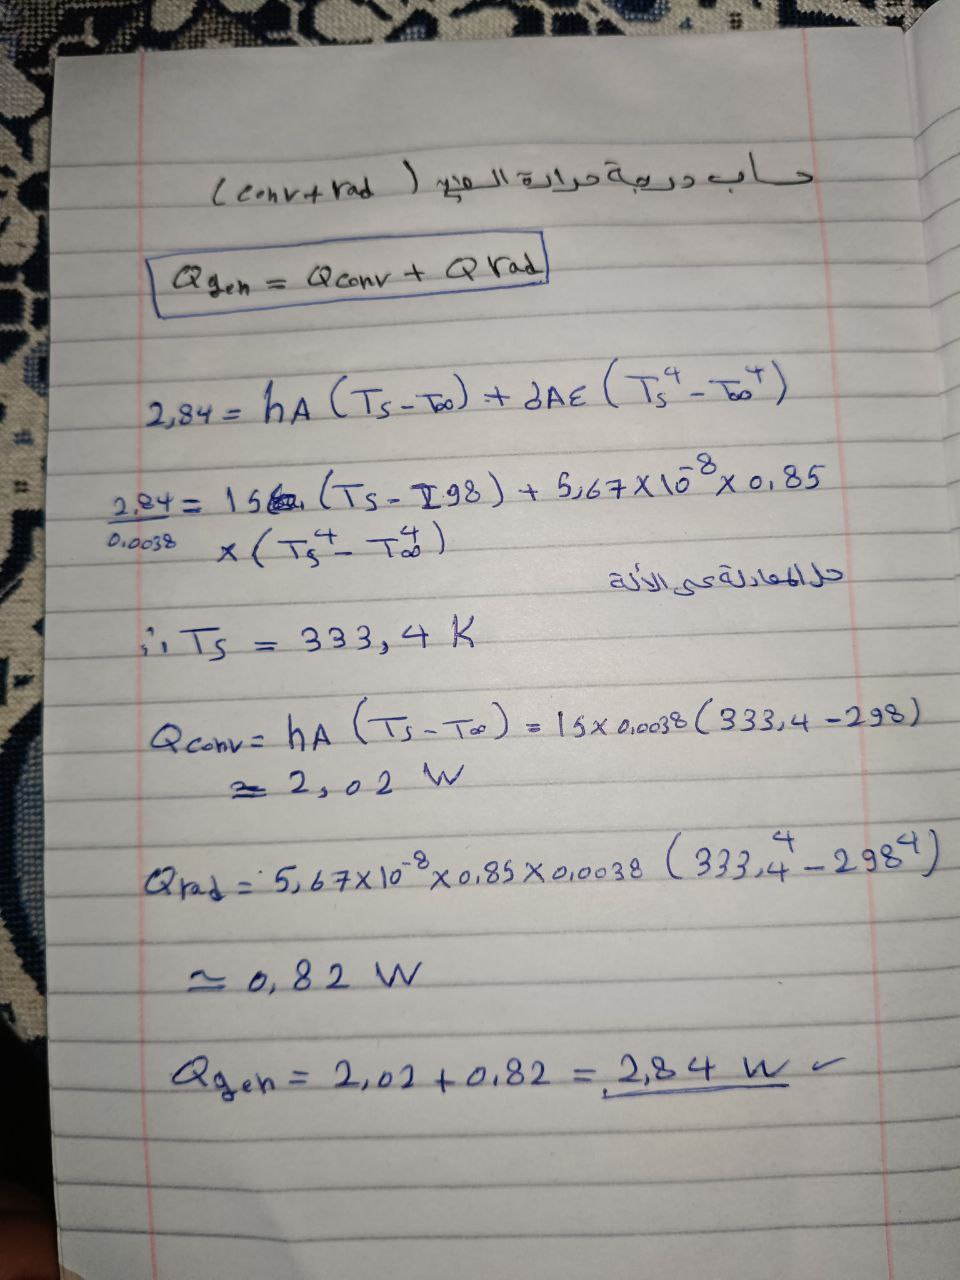 حساب درجة حرارة السطح (conv + rad)
Qgen = Qconv + Qrad
2,84 = hA (Ts - T∞) + δAε (Ts⁴ - T∞⁴)
2,84/0,0038 = 15 (Ts - 298) + 5,67 × 10⁻⁸ × 0,85
× (Ts⁴ - T∞⁴)
حل المعادلة على الآلة
∴ Ts = 333,4 K
Qconv = hA (Ts - T∞) = 15 × 0,0038 (333,4 - 298)
≃ 2,02 W
Qrad = 5,67 × 10⁻⁸ × 0,85 × 0,0038 (333,4⁴ - 298⁴)
≃ 0,82 W
Qgen = 2,02 + 0,82 = 2,84 W ✓